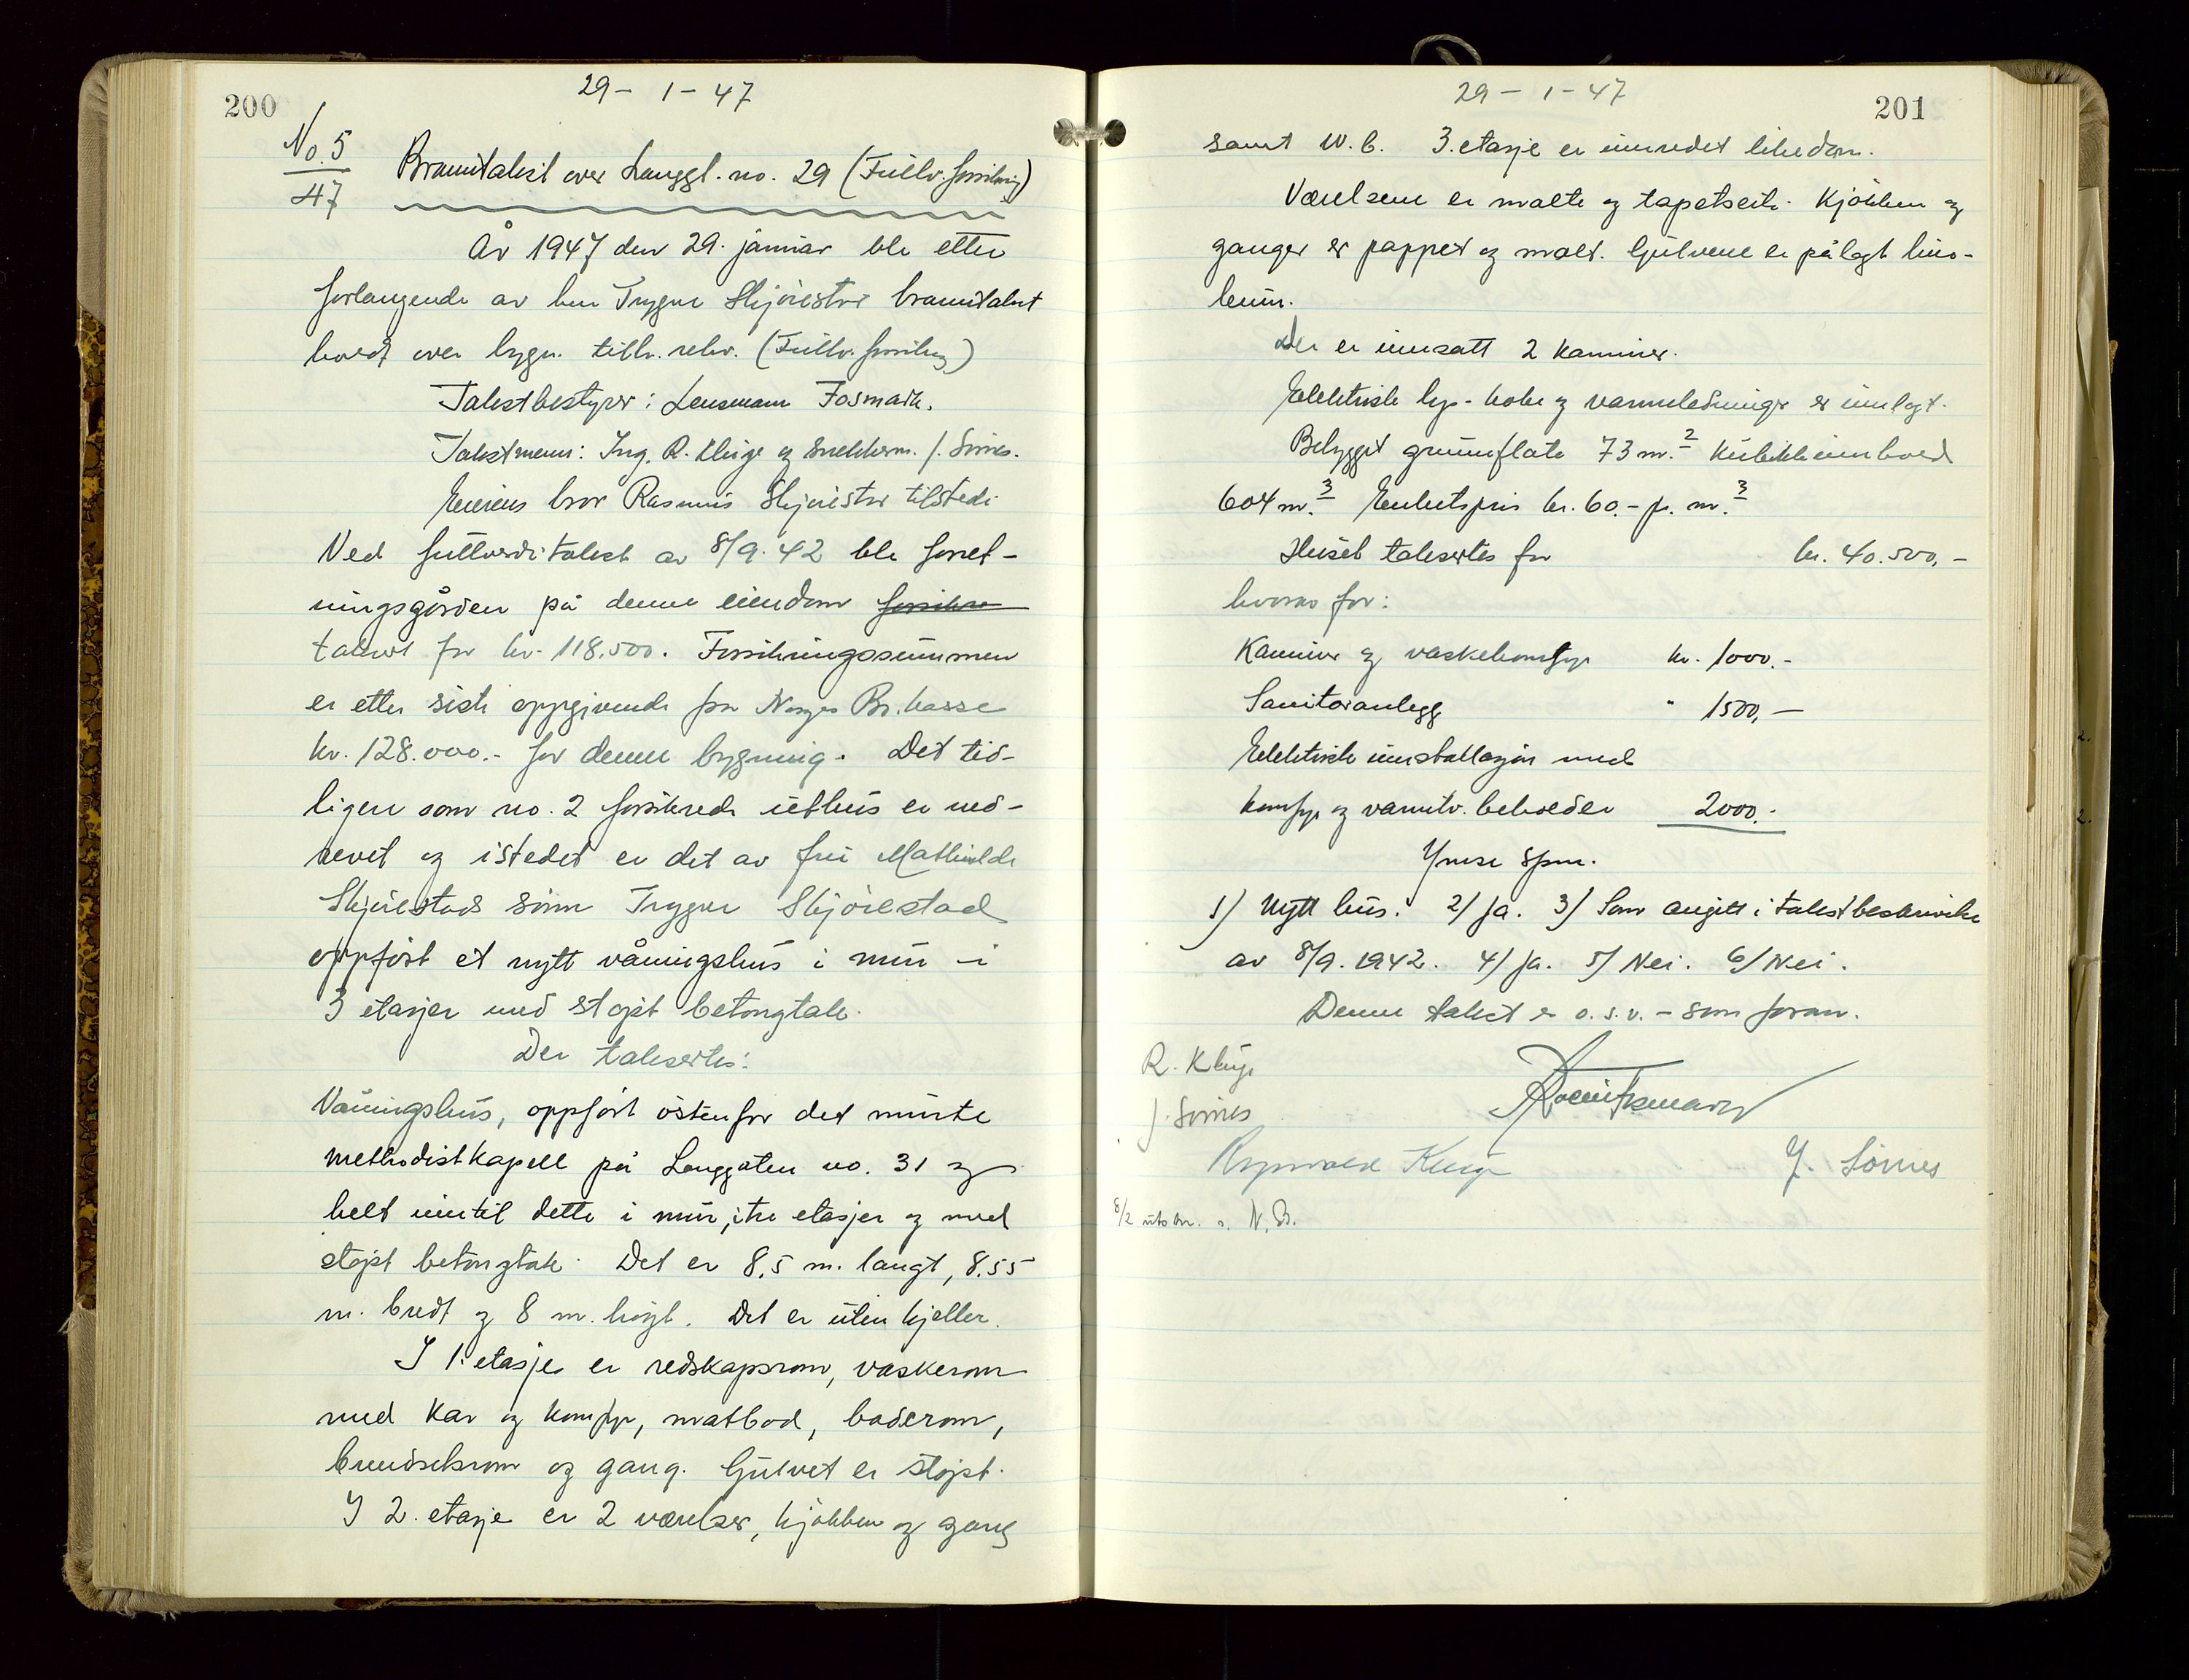 200
29 - 1 - 47
No. 5
47
Branntakst over Langgt. no. 29 (Fullv. forsikring)
År 1947 den 29. januar ble etter
forlangende av herr Trygve Skjörestad branntakst
holdt over bygn. tilh. rekv. (Fullv. forsikring)
Takstbestyrer: Lensmann Fosmark.
Takstmenn: Ing. R. Kluge og snekkerm. J. Sömes.
Eierens bror Rasmus Skjörestad tilstede
Ved fullverditakst av 8/9. 42 ble forret-
ningsgården på denne eiendom forsikre
takert for kr. 118.500. Forsikringssummen
er etter siste oppgivende fra Norges Br.kasse
kr. 128.000.- for denne bygning. Det tid-
ligere som no. 2 forsikrede uthus er ned-
revet og istedet er det av fru Mathilde
Skjörestads sönn Trygve Skjörestad
oppfört et nytt våningshus i mur i
3 etasjer med stöpt betongtak.
Der taksertes:
Våningshus, oppfört östenfor det murte
methodistkapell på Langgaten no. 31 og
helt inntil dette i mur, i tre etasjer og med
stöpt betongtak. Det er 8,5 m. langt, 8.55
m. bredt og 8 m. höyt. Det er uten kjeller.
I 1. etasje er redskapsrom, vaskerom
med kar og komfyr, matbod, baderom,
brendselsrom og gang. Gulvet er stöpt.
I 2. etasje er 2 værelser, kjökken og gang
29 - 1 - 47
201
samt W.C. 3. etasje er innredet likedan.
Værelsene er malte og tapetserte. Kjökken og
ganger er pappet og malt. Gulvene er pålagt lino-
leum.
Der er innsatt 2 kaminer.
Elektriske lys- koke og varmeledninger er innlagt.
Bebygget grunnflate 73 m.² Kubikkinnhold
604 m.³ Enhetspris kr. 60.- pr. m.³
Huset taksertes for kr. 40.500,-
hvorav for:
Kaminer og vaskekomfyr kr. 1000.-
Sanitæranlegg " 1500,-
Elektrisk installasjon med
komfyr og varmtv. beholder 2000.-
Ymse spm.
1) Nytt hus. 2) Ja. 3) Som angitt i takstbeskrivelse
av 8/9. 1942. 4) Ja. 5) Nei. 6) Nei.
Denne takst er o.s.v. - som foran.
R. Kluge
J. Sömes
Reynvald Kluge J. Sömes
8/2 utskr. s. N. B.